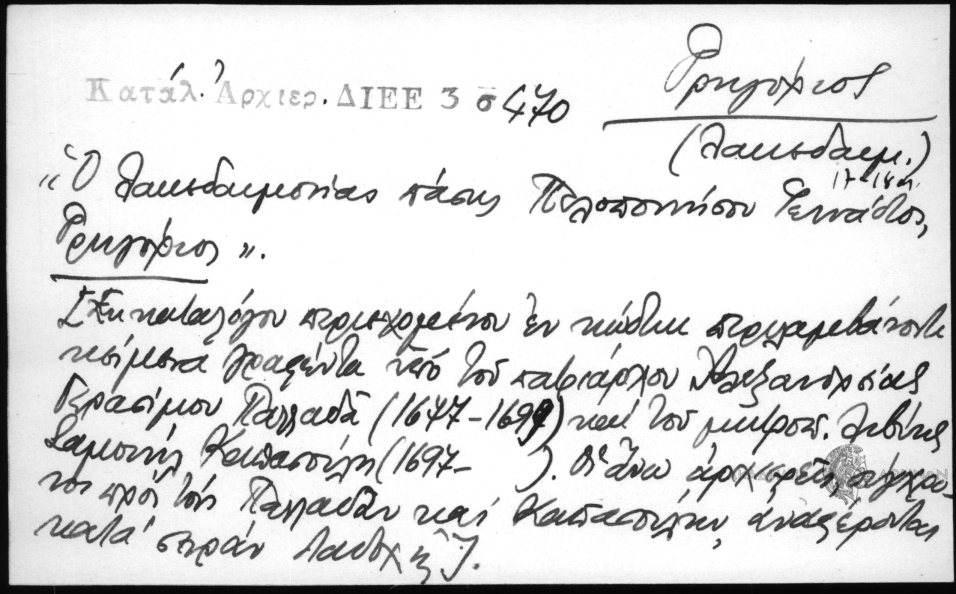 Κατάλ. Ἀρχιερ. ΔΙΕΕ 3 σ 470
Γρηγόριος
(Λακεδαιμ.)
17-18 αι.
«Ὁ Λακεδαιμονίας πάσης Πελοποννήσου Γεννάδιος,
Γρηγόριος».
[Ἐκ καταλόγου περιεχομένου ἐν κώδικι περιλαμβάνοντι
κείμενα γραφέντα ὑπό τοῦ πατριάρχου Ἀλεξανδρείας
Γερασίμου Παλλαδᾶ (1677-1699) καί τοῦ μητροπ. Λιβύης
Σαμουήλ Καπασούλη (1697- ). Οἱ ἄνω ἀρχιερεῖς, σύγχρο-
νοι πρός τούς Παλλαδᾶν και Καπασούλην, ἀναφέρονται
κατά σειράν διαδοχῆς].